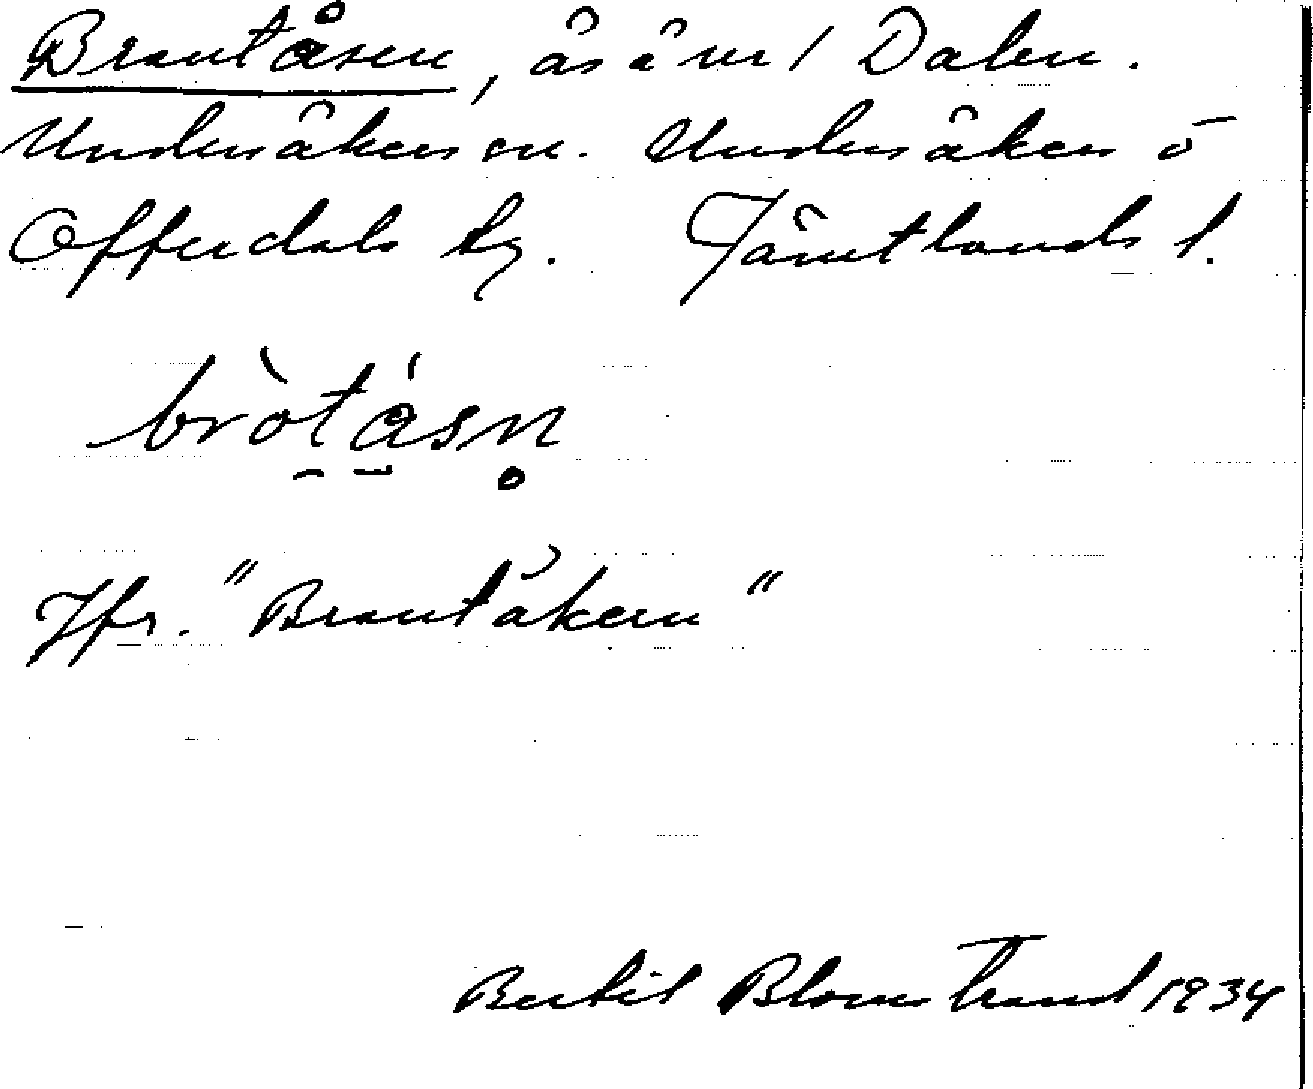 Brantåsen, ås ä nr 1 Dalen.
Undersåkers sn. Undersåkers o
Offerdals tg. Jämtlands l.
bròtásn̥
Jfr. "Brantåkern"
Bertil Blomstrand 1934